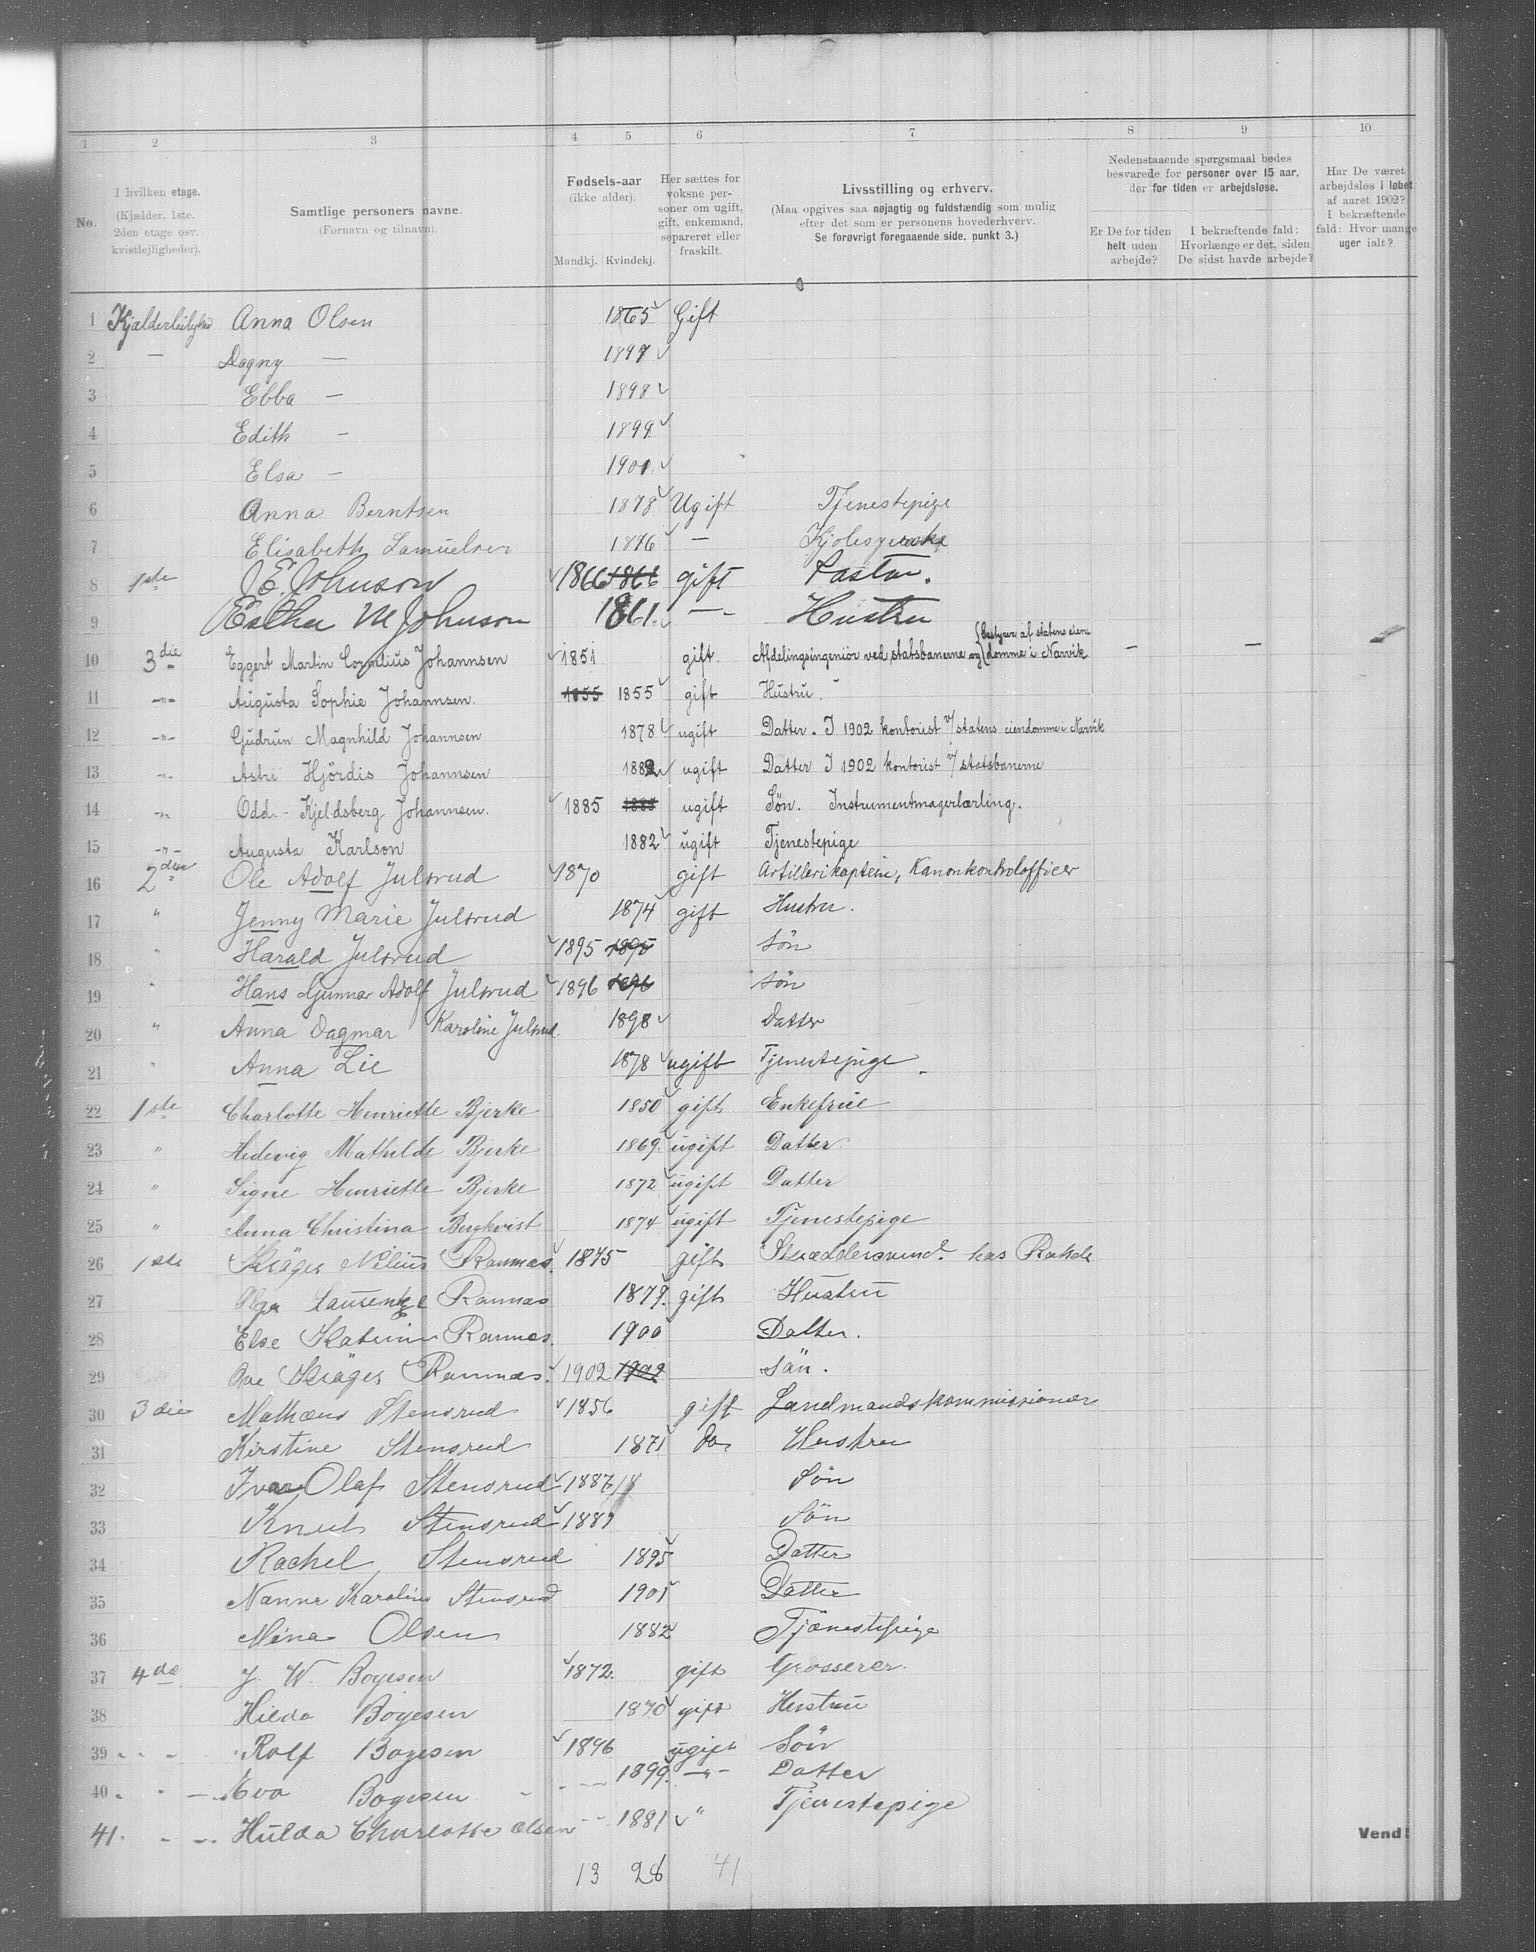 1 2 3 4 5 6 7 8 9 10
No.
I hvilken etage.
(Kjælder, 1ste.
2den etage osv.
kvistlejligheder).
Samtlige personers navne.
(Fornavn og tilnavn).
Fødsels-aar
(ikke alder).
Mandkj. Kvindekj.
Her sættes for
voksne per-
soner om ugift,
gift, enkemand,
separeret eller
fraskilt.
Livsstilling og erhverv.
(Maa opgives saa nøjagtig og fuldstændig som mulig
efter det som er personens hovederhverv.
Se forøvrigt foregaaende side, punkt 3.)
Nedenstaaende spørgsmaal bedes
besvarede for personer over 15 aar,
der for tiden er arbejdsløse.
Er De for tiden
helt uden
arbejde?
I bekræftende fald:
Hvorlænge er det, siden
De sidst havde arbejde?
Har De været
arbejdsløs i løbet
af aaret 1902?
I bekræftende
fald: Hvor mange
uger ialt?
1 Anna Olsen 1865 Gift
2 — Dagny — 1897
3 Ebba — 1898
4 Edith — 1899
5 Elsa — 1901
6 Anna Berntsen 1878 Ugift Tjenestepige
7 Elisabeth Samuelsen 1876 —
8 1ste J E Johnson 1866 1866 gift Pastor.
9 Esther M Johnson 1861. — Hustru
10 3die Eggert Martin Cornelius Johannsen 1851 gift. Afdelingsingeniør ved statsbanerne og (bestyrer af statens eien domme i Narvik — —
11 -"- Augusta Sophie Johannsen. 1855 1855 gift Hustru.
12 -"- Gudrun Magnhild Johannsen 1878 ugift Datter. I 1902 kontorist v/ statens eiendomme i Narvik
13 -"- Astri Hjördis Johannsen 1882 ugift Datter I 1902 kontorist v/ statsbanerne
14 -"- Odd - Kjeldsberg Johannsen. 1885 1885 ugift Søn. Instrumentmagerlærling.
15 -"- Augusta Karlson 1882 ugift Tjenestepige
16 2den Ole Adolf Julsrud 1870 gift Artillerikaptein, Kanonkontrolofficer
17 " Jenny Marie Julsrud 1874 gift Hustru.
18 " Harald Julsrud 1895 1895 Søn
19 " Hans Gunnar Adolf Julsrud 1896 1896 Søn
20 " Anna Dagmar Karoline Julsrud 1898 Datter
21 " Anna Lie 1878 ugift Tjenestepige
22 1ste Charlotte Henriette Bjerke 1850 gift Enkefrue
23 " Hedevig Mathilde Bjerke 1869. ugift Datter
24 " Signe Henriette Bjerke 1872 ugift Datter
25 " Anna Christina Bergkvist 1874 ugift Tjenestepige
26 1ste Ramnæs. 1875 gift Skræddersvend. hos
27 Olga Ramnæs 1879. gift Hustru
28 Else Katrin Ramnæs. 1900 Datter.
29 Ramnæs. 1902 1902 Sön.
30 3die Mathæus Stensrud 1856 gift Landmandskommissionær
31 Kirstine Stensrud 1871 do Hustru
32 Ivar Olaf Stensrud 1887 Søn
33 Knut Stensrud 1889 Søn
34 Rachel Stensrud 1895 Datter
35 Nanna Karoline Stensrud 1901 Datter
36 Mina Olsen 1882 Tjænestepige
37 4de J. W. Boyesen 1872. gift Grosserer.
38 Hilda Boyesen 1870 gift Hustru
39 - - - Rolf Boyesen 1896 ugift Søn
40 - - - Eva Boyesen 1899. -"- Datter
41. - - - Hulda Charlotte Olsen 1881 " Tjenestepige
Vend!
13 28 41